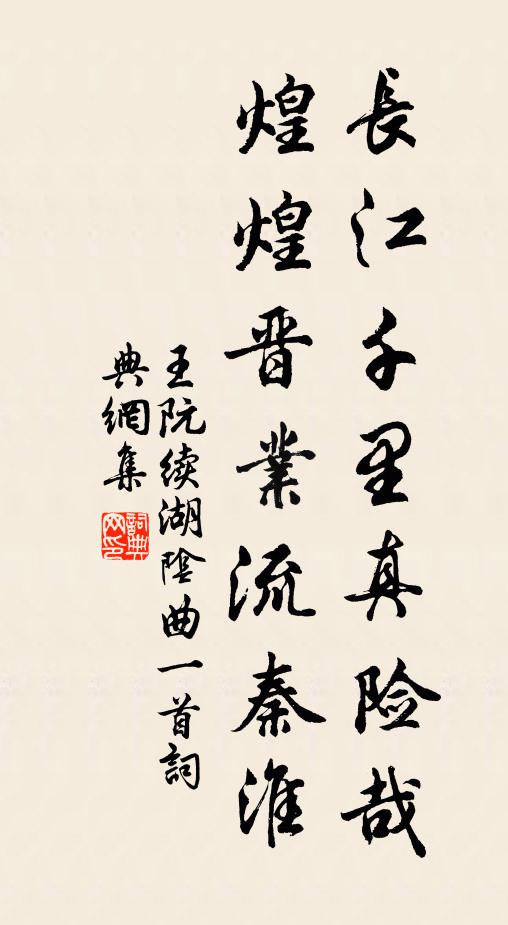 長江千里真险哉
煌煌晋業流秦淮
王阮续湖陰曲一首詞
典網集
詞典
网印